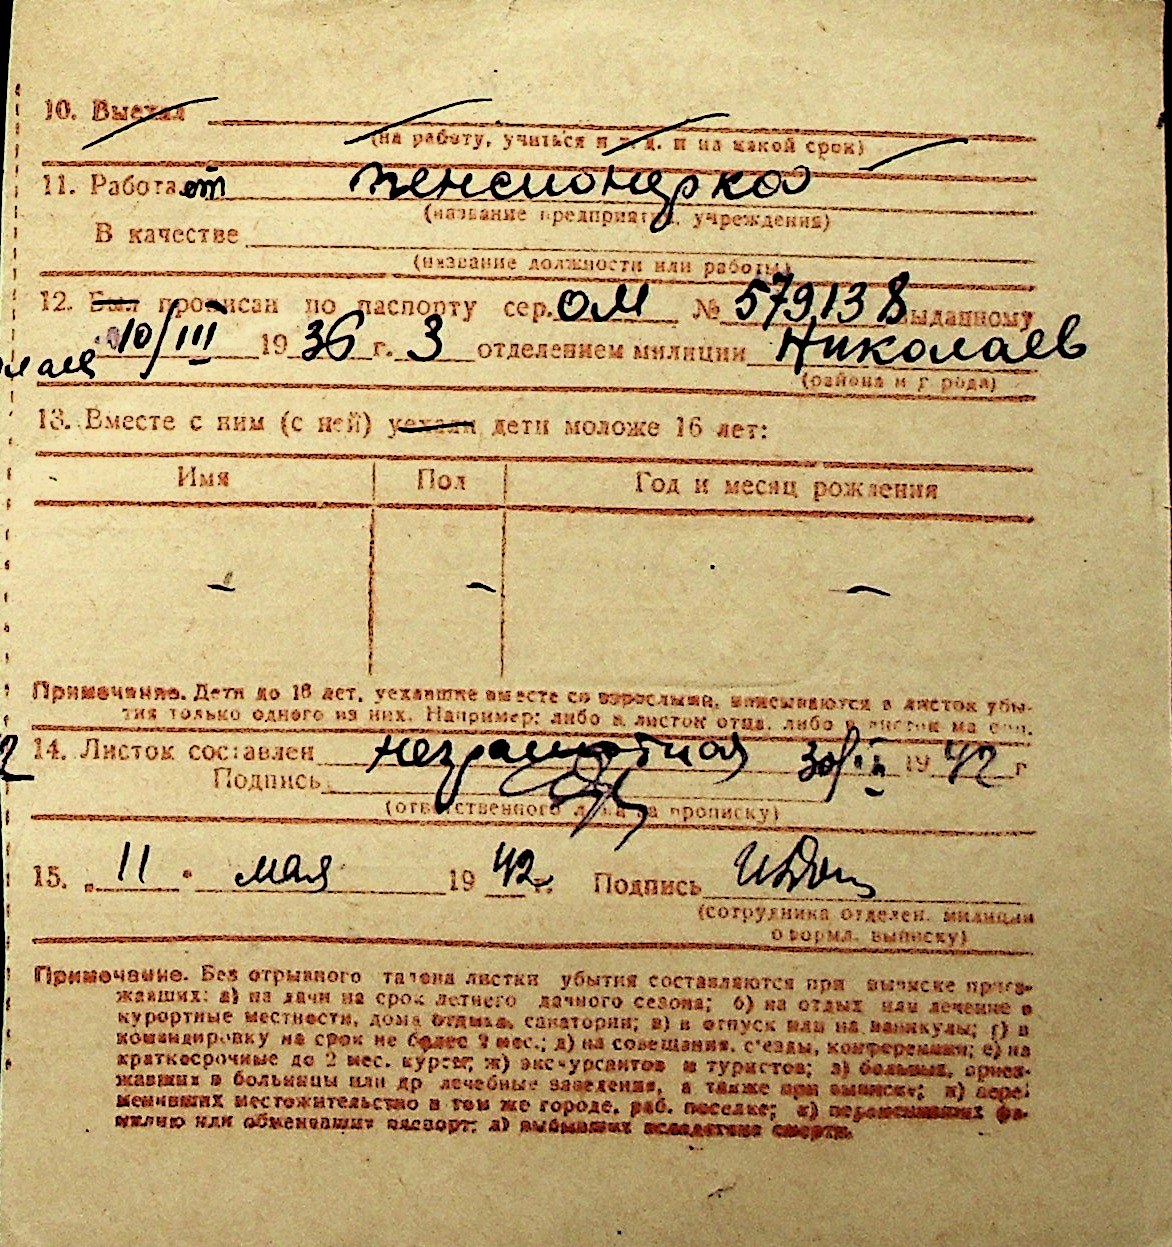 10. Выехал
(на работу, учиться и т. д. и на какой срок)
11. Работает пенсионерка
(название предприятия, учреждения)
В качестве
(название должности или работы)
12. Был прописан по паспорту сер. ОМ № 579138 выданному
10/III 1936 г. 3 отделением милиции Николаев
(района и города)
13. Вместе с ним (с ней) уехали дети моложе 16 лет:
Имя Пол Год и месяц рождения
– – –
Примечание. Дети до 16 лет, уехавшие вместе со взрослыми, вписываются в листок убы-
тия только одного из них. Например: либо в листок отца, либо в листок матери.
14. Листок составлен неграмотная 30/ 1942 г
Подпись
(ответственного лица за прописку)
15. „11" мая 1942 г. Подпись
(сотрудника отделен. милиции
оформл. выписку)
Примечание. Без отрывного талона листки убытия составляются при выписке приез-
жавших: а) на дачи на срок летнего дачного сезона; б) на отдых или лечение в
курортные местности, дома отдыха, санатории; в) в отпуск или на каникулы; г) в
командировку на срок не более 2 мес.; д) на совещания, с'езды, конференции; е) на
краткосрочные до 2 мес. курсы; ж) экскурсантов и туристов; з) больных, приез-
жавших в больницы или др лечебные заведения, а также при выписке; и) пере-
менивших местожительство в том же городе, раб. поселке; к) переменивших фа-
милию или обменявших паспорт; л) выбывших вследствие смерти.